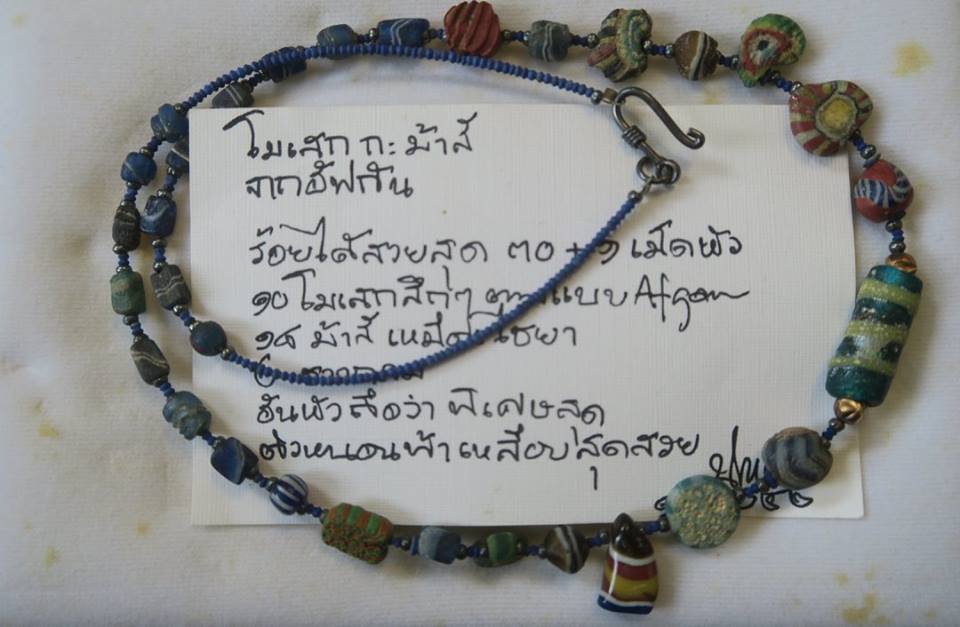 โมเสก กะ ม้าลี้
จากอัฟกัน
ร้อยได้สวยสุด ๓๐ + ๑ เม็ดหัว
๑๐ โมเสกสึกๆ แบบ Afgan
๑๔ ม้าลี้ เหมือนไชยา
อันหัวถือว่า พิเศษสุด
ตัวหนอนฟ้าเหลือบสุดสวย